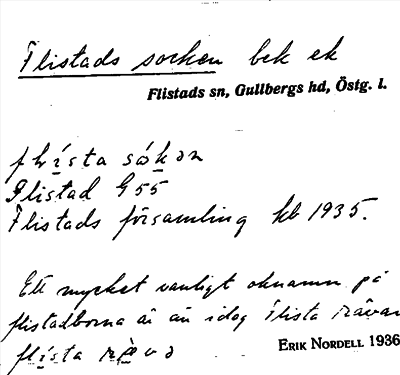 Flistads socken bek ek
Flistads sn, Gullbergs hd, Östg. l.
flista sókən
Flistad G 55
Flistads församling kb 1935.
Ett mycket vanligt öknamn på
flistadborna är än idag Flista rävar
flista rävə
ERIK NORDELL 1936